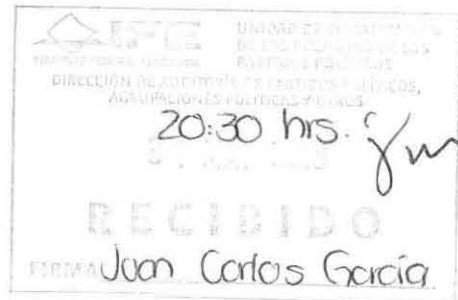 IFE
UNIDAD DE FISCALIZACIÓN
DE LOS RECURSOS DE LOS
PARTIDOS POLÍTICOS
DIRECCIÓN DE AUDITORÍA DE PARTIDOS POLÍTICOS,
AGRUPACIONES POLÍTICAS Y OTROS
20:30 hrs.
RECIBIDO
FIRMA Juan Carlos García